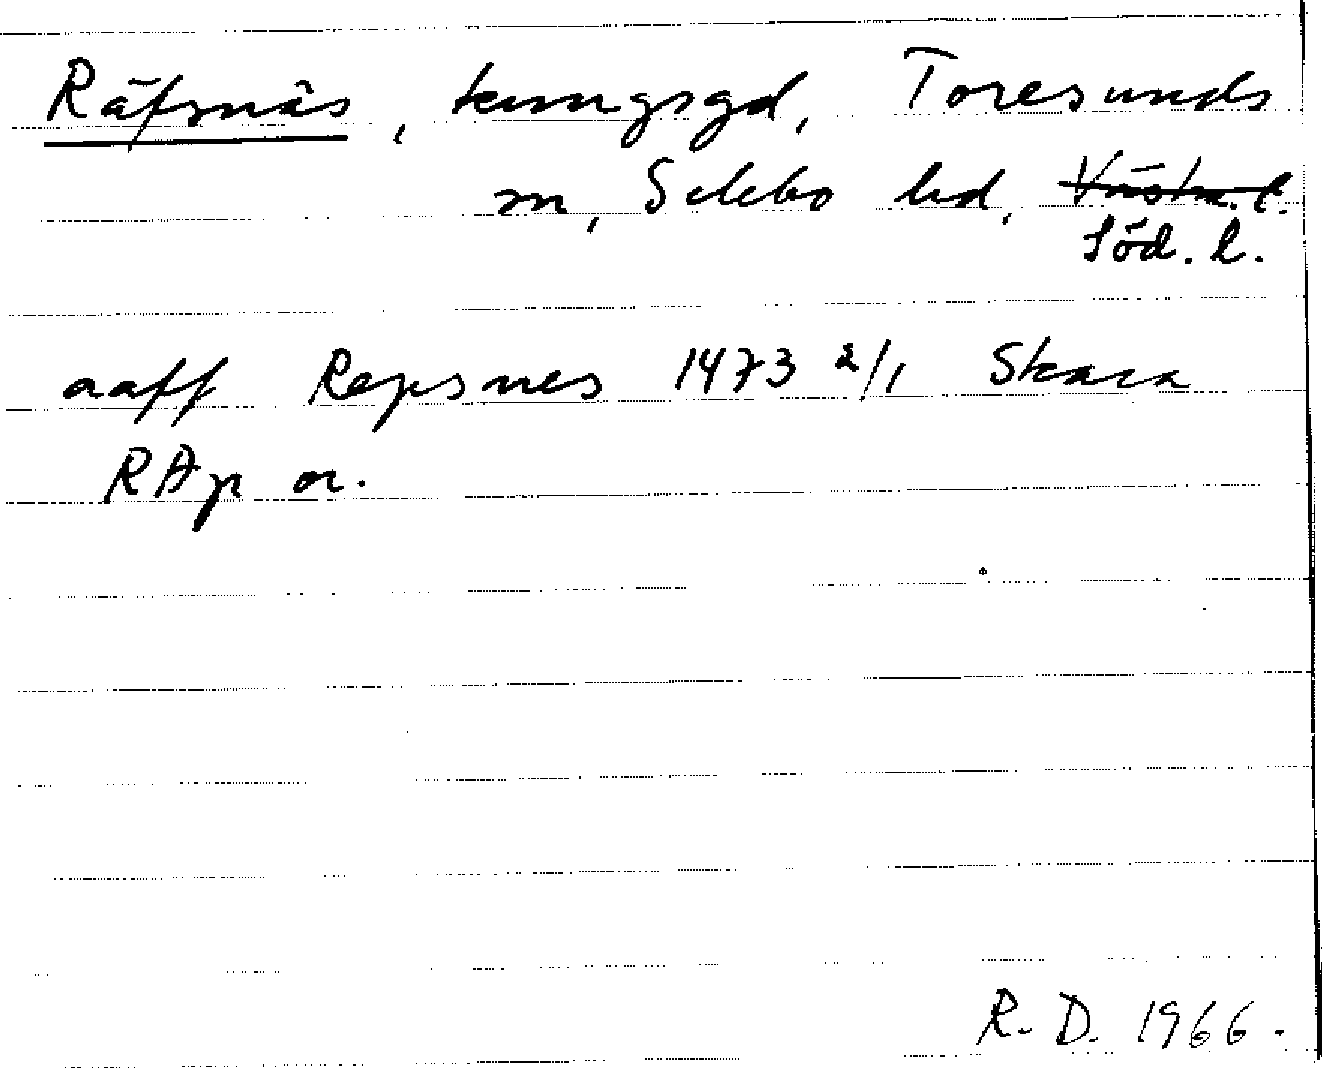 Räfsnäs, kungsgd, Toresunds
sn, Selebo hd, Västm. l.
Söd. l.
aaff Repsnes 1473 2/1 Skara
RAp or.
R. D. 1966.